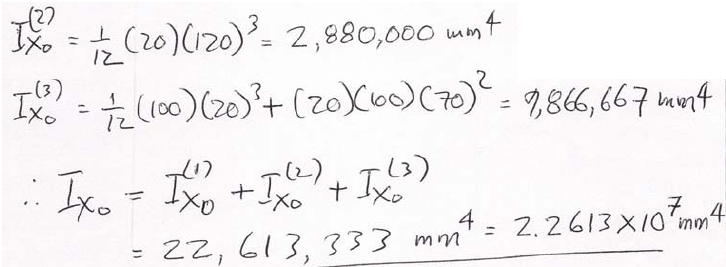 I_{X_0}^{(2)} = 1/12 (20)(120)^3 = 2,880,000 mm^4
I_{X_0}^{(3)} = 1/12 (100)(20)^3 + (20)(100)(70)^2 = 9,866,667 mm^4
∴ I_{X_0} = I_{X_0}^{(1)} + I_{X_0}^{(2)} + I_{X_0}^{(3)}
= 22,613,333 mm^4 = 2.2613×10^7 mm^4